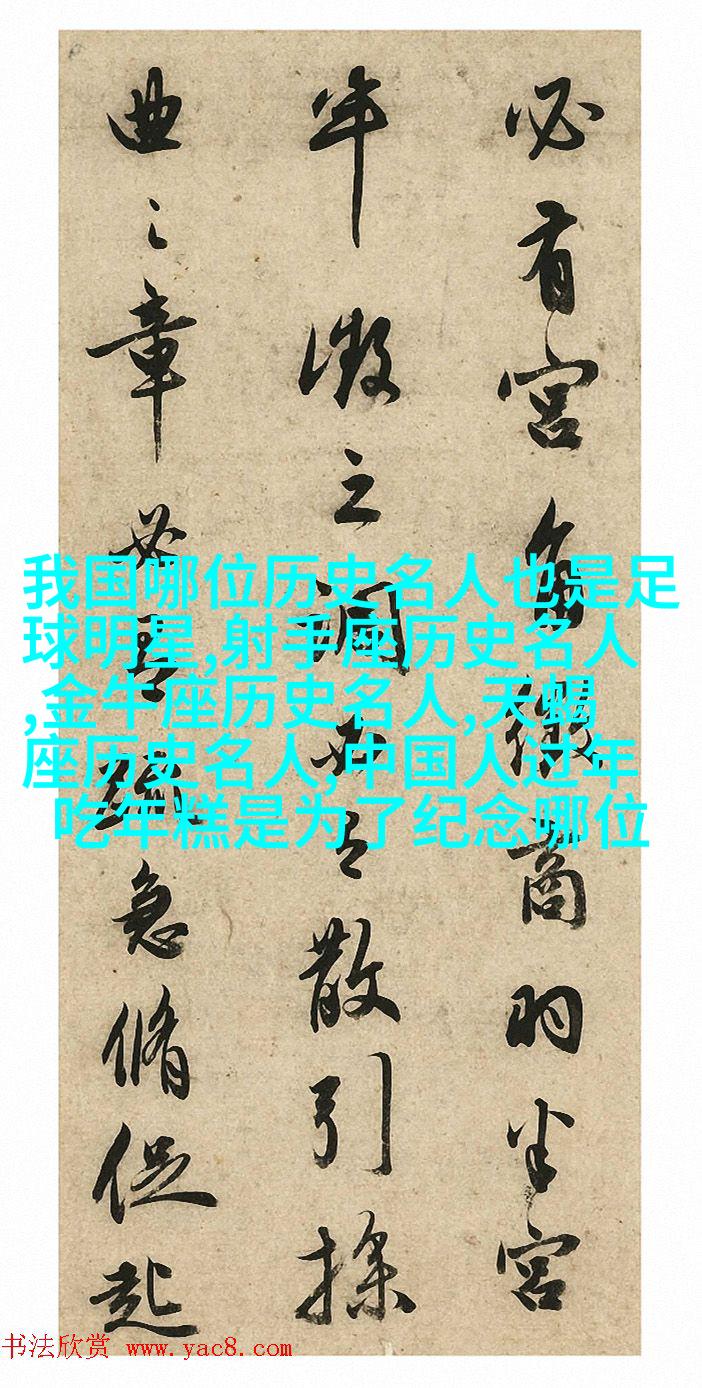 必有宮角徵商羽半宮
半徵之調之散引操
曲之章急脩促起
我国哪位历史名人也是足
球明星,射手座历史名人
,金牛座历史名人,天蝎
座历史名人,中国人过年
吃年糕是为了纪念哪位
书法欣赏 www.yac8.com